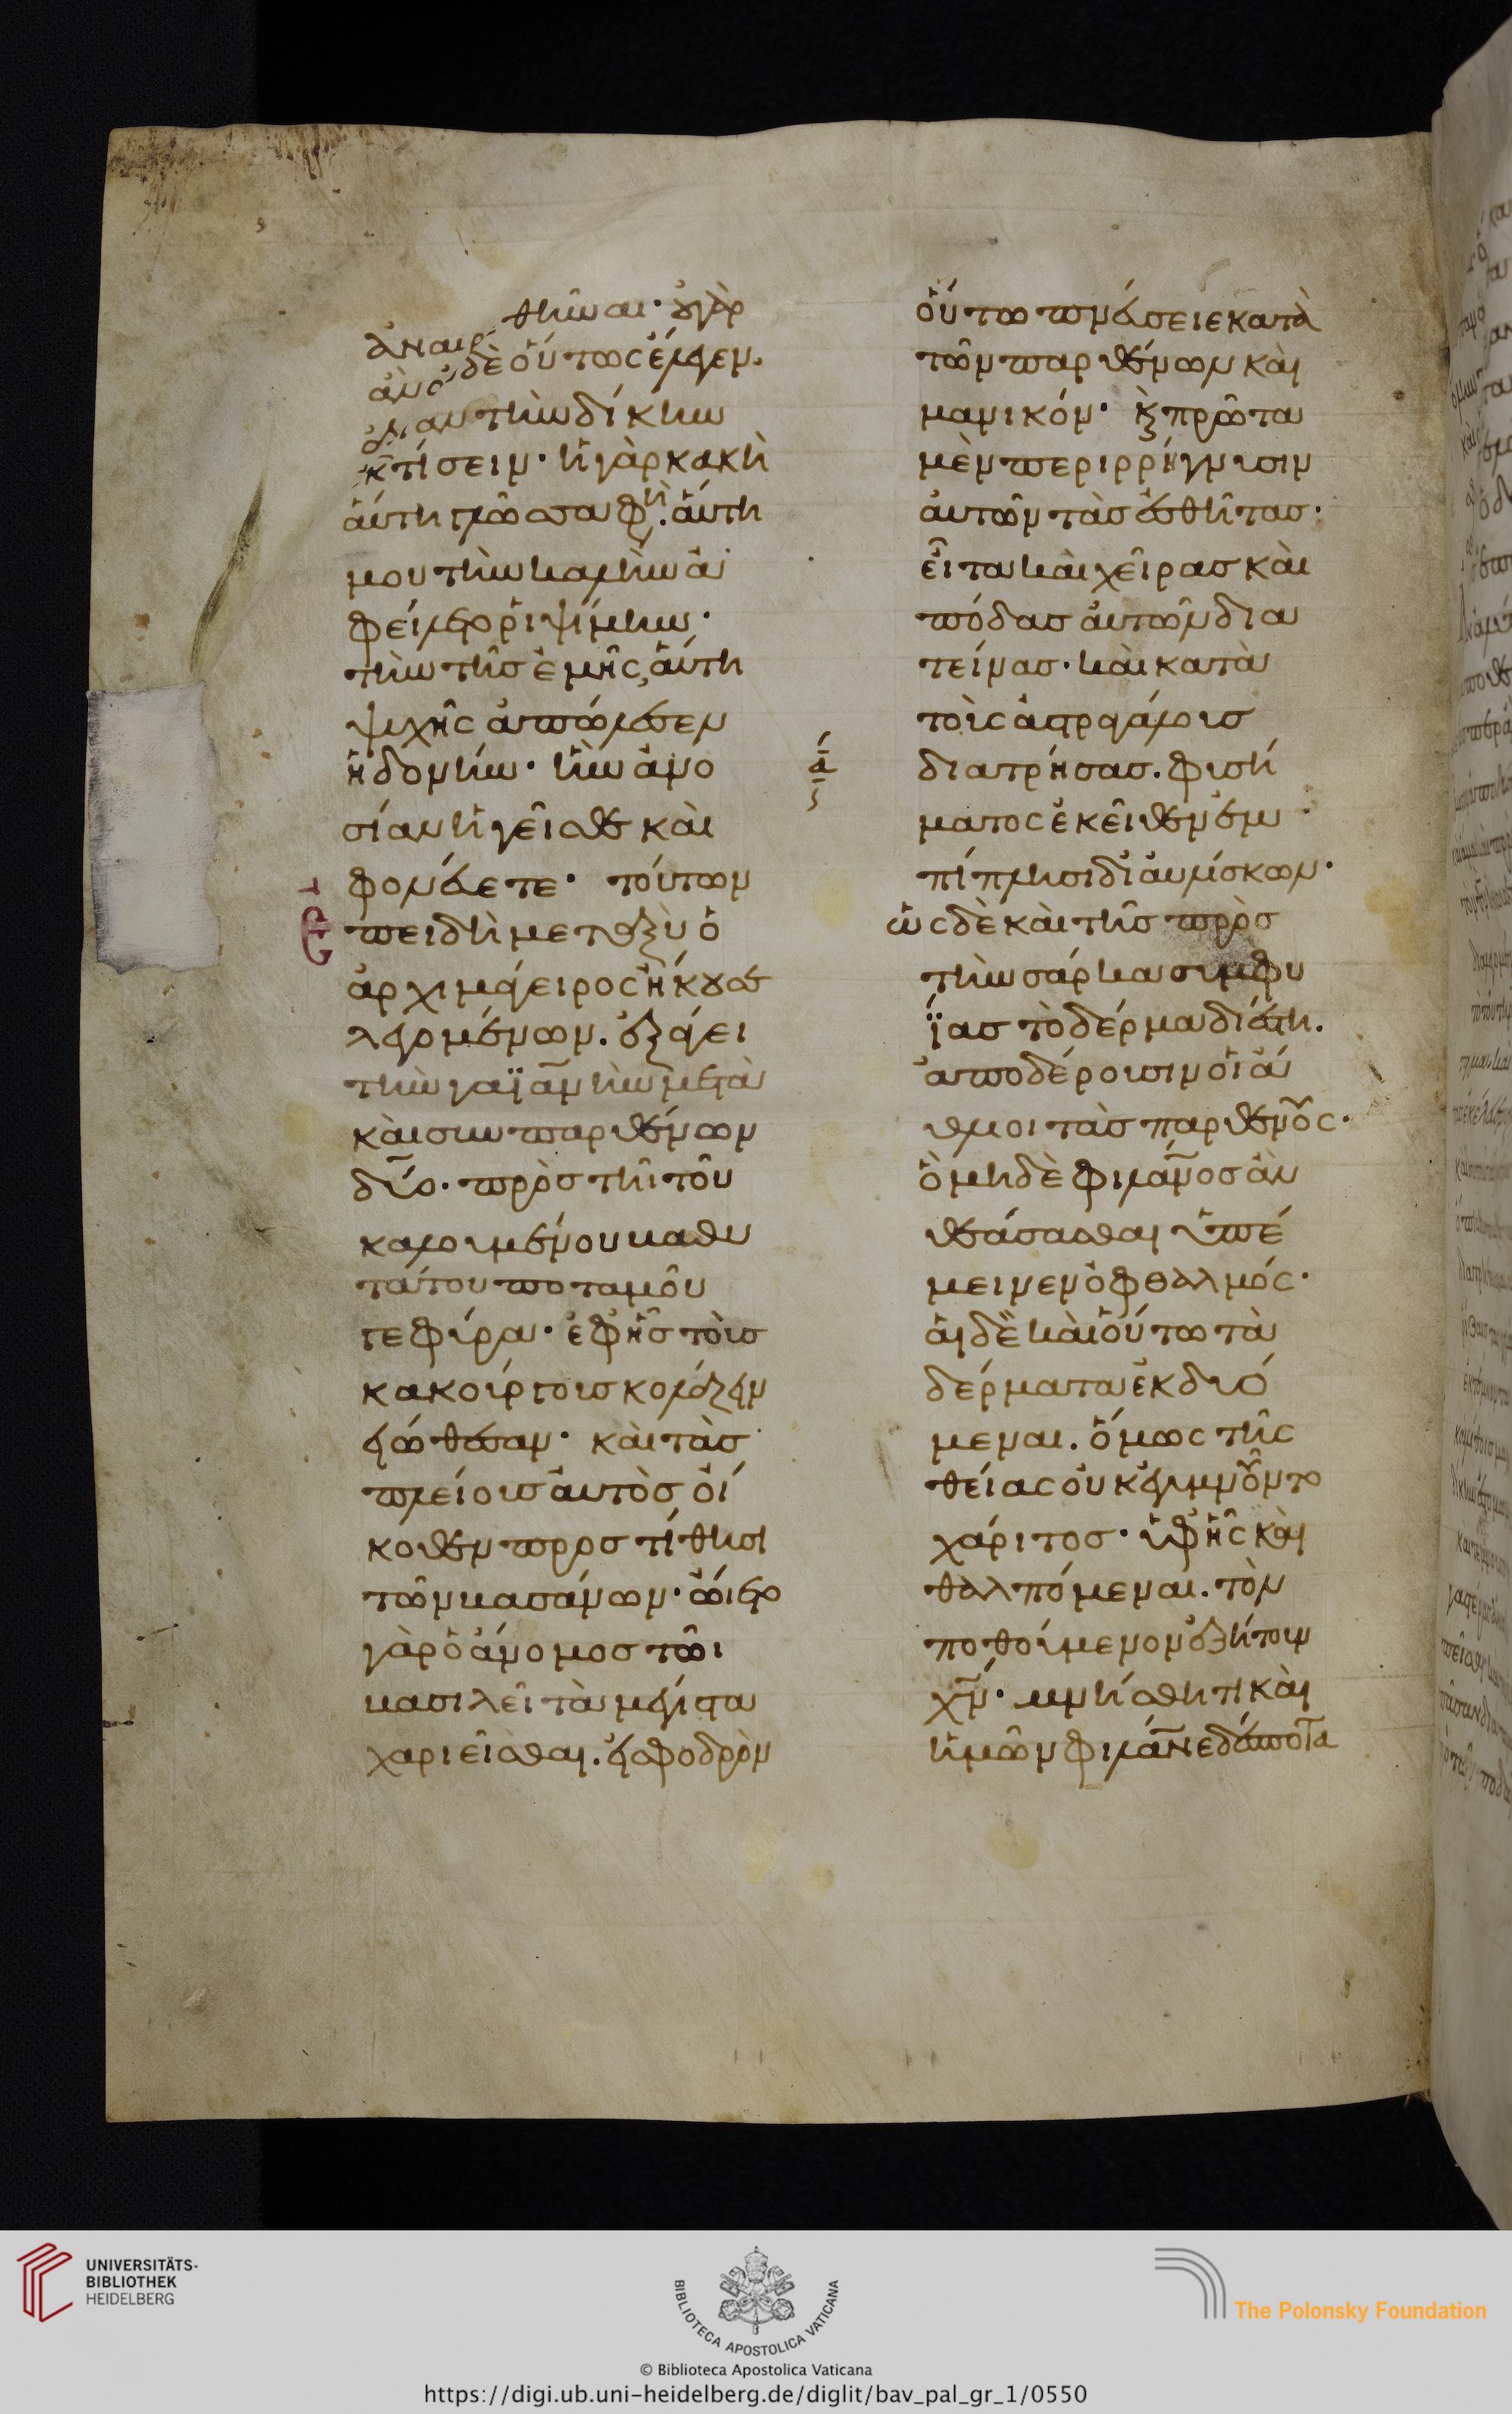 θῆναι· οὐ γὰρ
ἀναιρ
ἂν σ δὲ οὕτως ἔλεγεν.
αν τὴν δίκην
ἐκτίσειν· ἡ γὰρ κακὴ
αὕτη γλῶσσα φη̣. αὕτη
μου τὴν καλὴν ἀ
φείλετο ῥιψίμην·
τὴν τῆς ἐμῆς, αὕτη
ψυχῆς ἀπώλεσεν
ἡδονήν· ἣν ἀνο
σίαν ἡγεῖσθε καὶ
φονᾶτε· τούτων
ἐπειδὴ μεταξὺ ὁ
ἀρχιμάγειρος ἤκουσε
λεγομένων. ἐξάγει
τὴν γαϊανὴν μετὰ
καὶ συν παρθένων
δύο· πρὸς τῆι τοῦ
καλουμένου καθυ
τάτου ποταμοῦ
γεφύρα· ἐφ' ἧς τοῖς
κακούργοις κολάζειν
εἰώθασαν· καὶ τὰς
πλείους αὐτὸς οἴ
κοθεν προστίθησι
τῶν βασάνων· ὤιετο
γὰρ ὁ ἄνομος τῶι
βασιλεῖ τὰ μέγιστα
χαριεῖσθαι. εἰ σφοδρὸν
οὕτω πνεύσειε κατὰ
τῶν παρθένων καὶ
μανικόν· καὶ πρῶτα
μὲν περιρρήγνυσιν
αὐτῶν τὰς ἐσθῆτας·
εἶτα καὶ χεῖρας καὶ
πόδας αὐτῶν δια
τείνας· καὶ κατὰ
τοὺς ἀστραγάλους
διατρήσας. φυσή
ματος ἐκεῖθεν ἐμ
πίπλησι δι' αὐλίσκων·
ὡς δὲ καὶ τῆς πρὸς
τὴν σάρκα συμφυ
ΐας τὸ δέρμα διέστη.
ἀποδέρουσιν οἱ ἄ
θλιοι τὰς παρθένους·
ὃ μηδὲ φιλάνος ἂν
θεάσασθαι ὑπέ
μεινεν ὀφθαλμός·
αἱ δὲ καὶ οὕτω τὰ
δέρματα ἐκδυό
μεναι. ὅμως τῆς
θείας οὐκ ἐγυμνοῦντο
χάριτος· ὑφ' ἧς καὶ
θαλπόμεναι. τὸν
ποθούμενον ἐζήτουν
χν· μνήσθητι καὶ
ἡμῶν φιλάνε δέσποτα
UNIVERSITÄTS-
BIBLIOTHEK
HEIDELBERG
BIBLIOTECA APOSTOLICA VATICANA
The Polonsky Foundation
© Biblioteca Apostolica Vaticana
https://digi.ub.uni-heidelberg.de/diglit/bav_pal_gr_1/0550